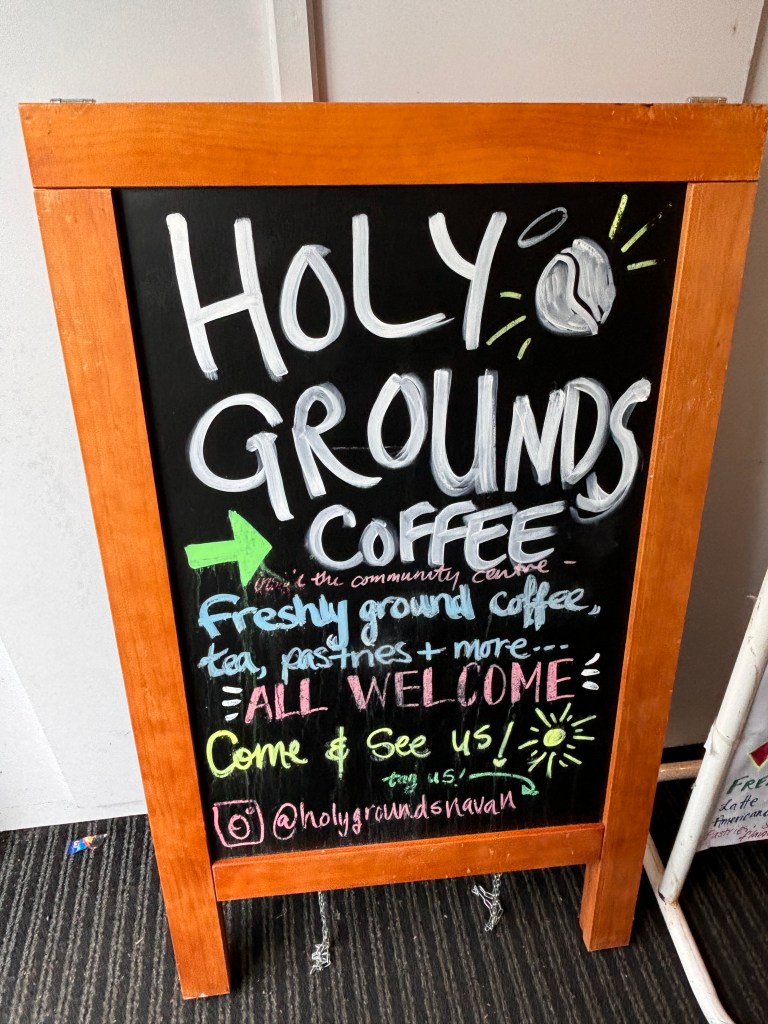 HOLY
GROUNDS
COFFEE
inside the community centre -
Freshly ground coffee,
tea, pastries + more...
ALL WELCOME
Come & See us!
tag us!
@holygroundsnavan
FRE
Latte
American
Pastries